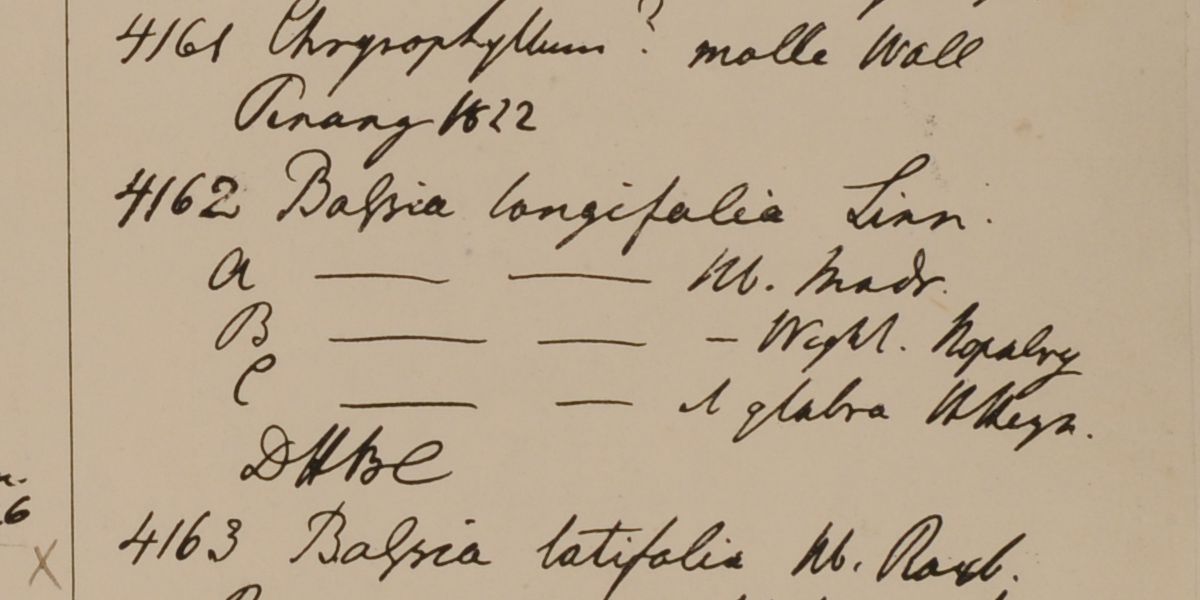 4161 Chrysophyllum? molle Wall
Penang 1822
4162 Bassia longifolia Linn.
A — — Hb. Madr.
B — — – Wight.
C — — glabra
D HBC
4163 Bassia latifolia Hb. Roxb.